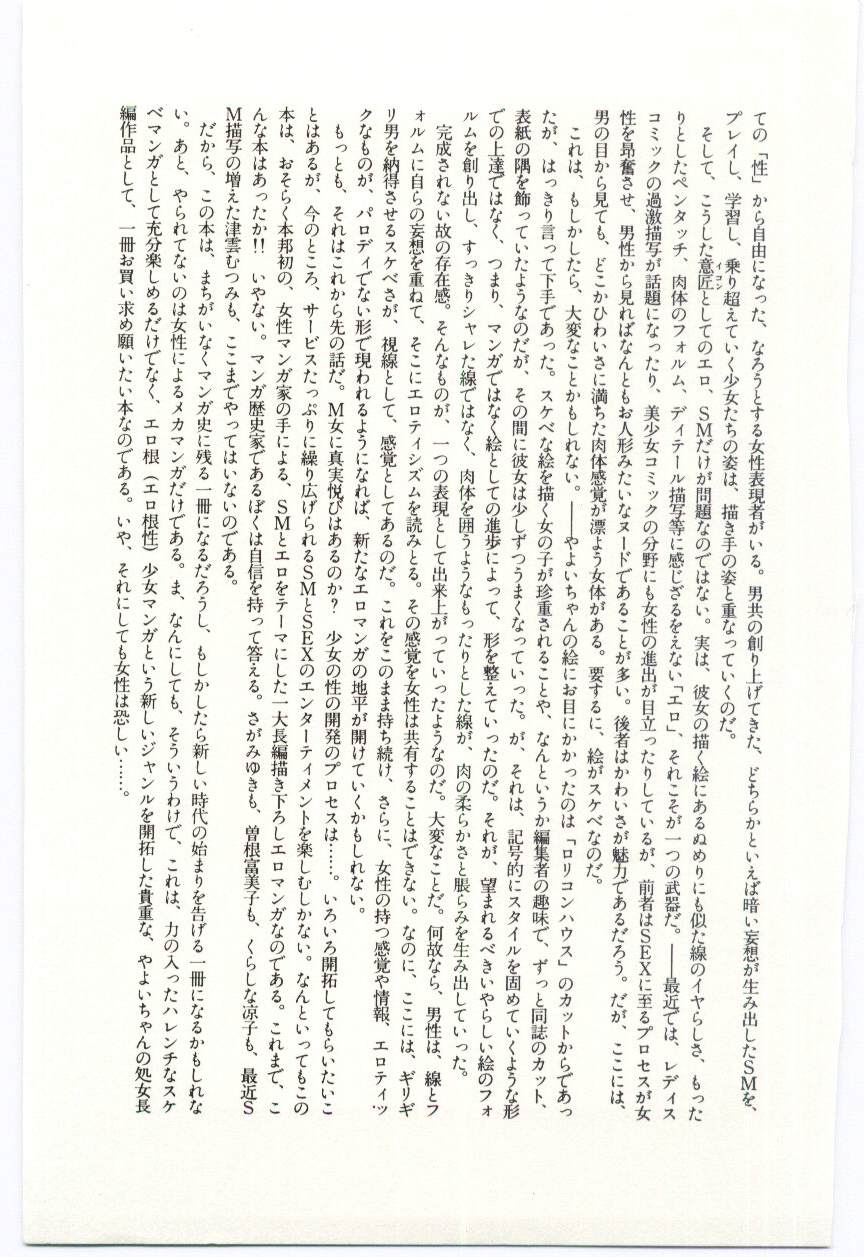 ての「性」から自由になった、なろうとする女性表現者がいる。男共の創り上げてきた、どちらかといえば暗い妄想が生み出したSMを、
プレイし、学習し、乗り超えていく少女たちの姿は、描き手の姿と重なっていくのだ。
そして、こうした意匠イコンとしてのエロ、SMだけが問題なのではない。実は、彼女の描く絵にあるぬめりにも似た線のイヤらしさ、もった
りとしたペンタッチ、肉体のフォルム、ディテール描写等に感じざるをえない「エロ」、それこそが一つの武器だ。――最近では、レディス
コミックの過激描写が話題になったり、美少女コミックの分野にも女性の進出が目立ったりしているが、前者はSEXに至るプロセスが女
性を昂奮させ、男性から見ればなんともお人形みたいなヌードであることが多い。後者はかわいさが魅力であるだろう。だが、ここには、
男の目から見ても、どこかひわいさに満ちた肉体感覚が漂よう女体がある。要するに、絵がスケベなのだ。
これは、もしかしたら、大変なことかもしれない。――やよいちゃんの絵にお目にかかったのは「ロリコンハウス」のカットからであっ
たが、はっきり言って下手であった。スケベな絵を描く女の子が珍重されることや、なんというか編集者の趣味で、ずっと同誌のカット、
表紙の隅を飾っていたようなのだが、その間に彼女は少しずつうまくなっていった。が、それは、記号的にスタイルを固めていくような形
での上達ではなく、つまり、マンガではなく絵としての進歩によって、形を整えていったのだ。それが、望まれるべきいやらしい絵のフォ
ルムを創り出し、すっきりシャレた線ではなく、肉体を囲うようなもったりとした線が、肉の柔らかさと脹らみを生み出していった。
完成されない故の存在感。そんなものが、一つの表現として出来上がっていったようなのだ。大変なことだ。何故なら、男性は、線とフ
ォルムに自らの妄想を重ねて、そこにエロティシズムを読みとる。その感覚を女性は共有することはできない。なのに、ここには、ギリギ
リ男を納得させるスケベさが、視線として、感覚としてあるのだ。これをこのまま持ち続け、さらに、女性の持つ感覚や情報、エロティッ
クなものが、パロディでない形で現われるようになれば、新たなエロマンガの地平が開けていくかもしれない。
もっとも、それはこれから先の話だ。M女に真実悦びはあるのか?　少女の性の開発のプロセスは……。いろいろ開拓してもらいたいこ
とはあるが、今のところ、サービスたっぷりに繰り広げられるSMとSEXのエンターティメントを楽しむしかない。なんといってもこの
本は、おそらく本邦初の、女性マンガ家の手による、SMとエロをテーマにした一大長編描き下ろしエロマンガなのである。これまで、こ
んな本はあったか!!　いやない。マンガ歴史家であるぼくは自信を持って答える。さがみゆきも、曽根富美子も、くらしな凉子も、最近S
M描写の増えた津雲むつみも、ここまでやってはいないのである。
だから、この本は、まちがいなくマンガ史に残る一冊になるだろうし、もしかしたら新しい時代の始まりを告げる一冊になるかもしれな
い。あと、やられてないのは女性によるメカマンガだけである。ま、なんにしても、そういうわけで、これは、力の入ったハレンチなスケ
ベマンガとして充分楽しめるだけでなく、エロ根（エロ根性）少女マンガという新しいジャンルを開拓した貴重な、やよいちゃんの処女長
編作品として、一冊お買い求め願いたい本なのである。いや、それにしても女性は恐しい……。